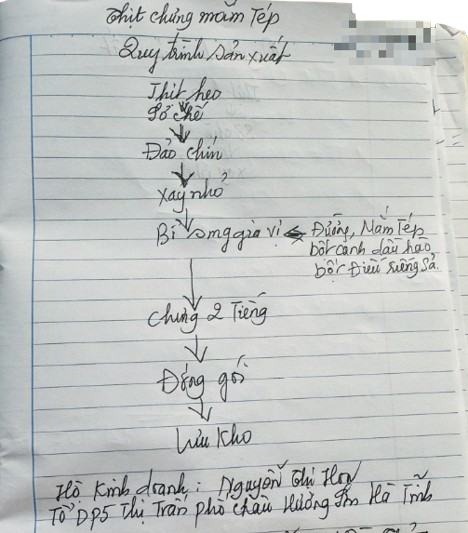 Thịt chưng mắm Tép
Quy trình sản xuất
Thịt heo
Sơ chế
Đảo chín
Xay nhỏ
Bỏ gia vị ← Đường, Mắm Tép
bột canh dầu hào
bột Điều riềng Sả.
Chưng 2 Tiếng
Đóng gói
Lưu Kho
Hộ Kinh doanh: Nguyễn Thị
Tổ DP5 Thị Trấn phố Châu Hương Sơn Hà Tĩnh